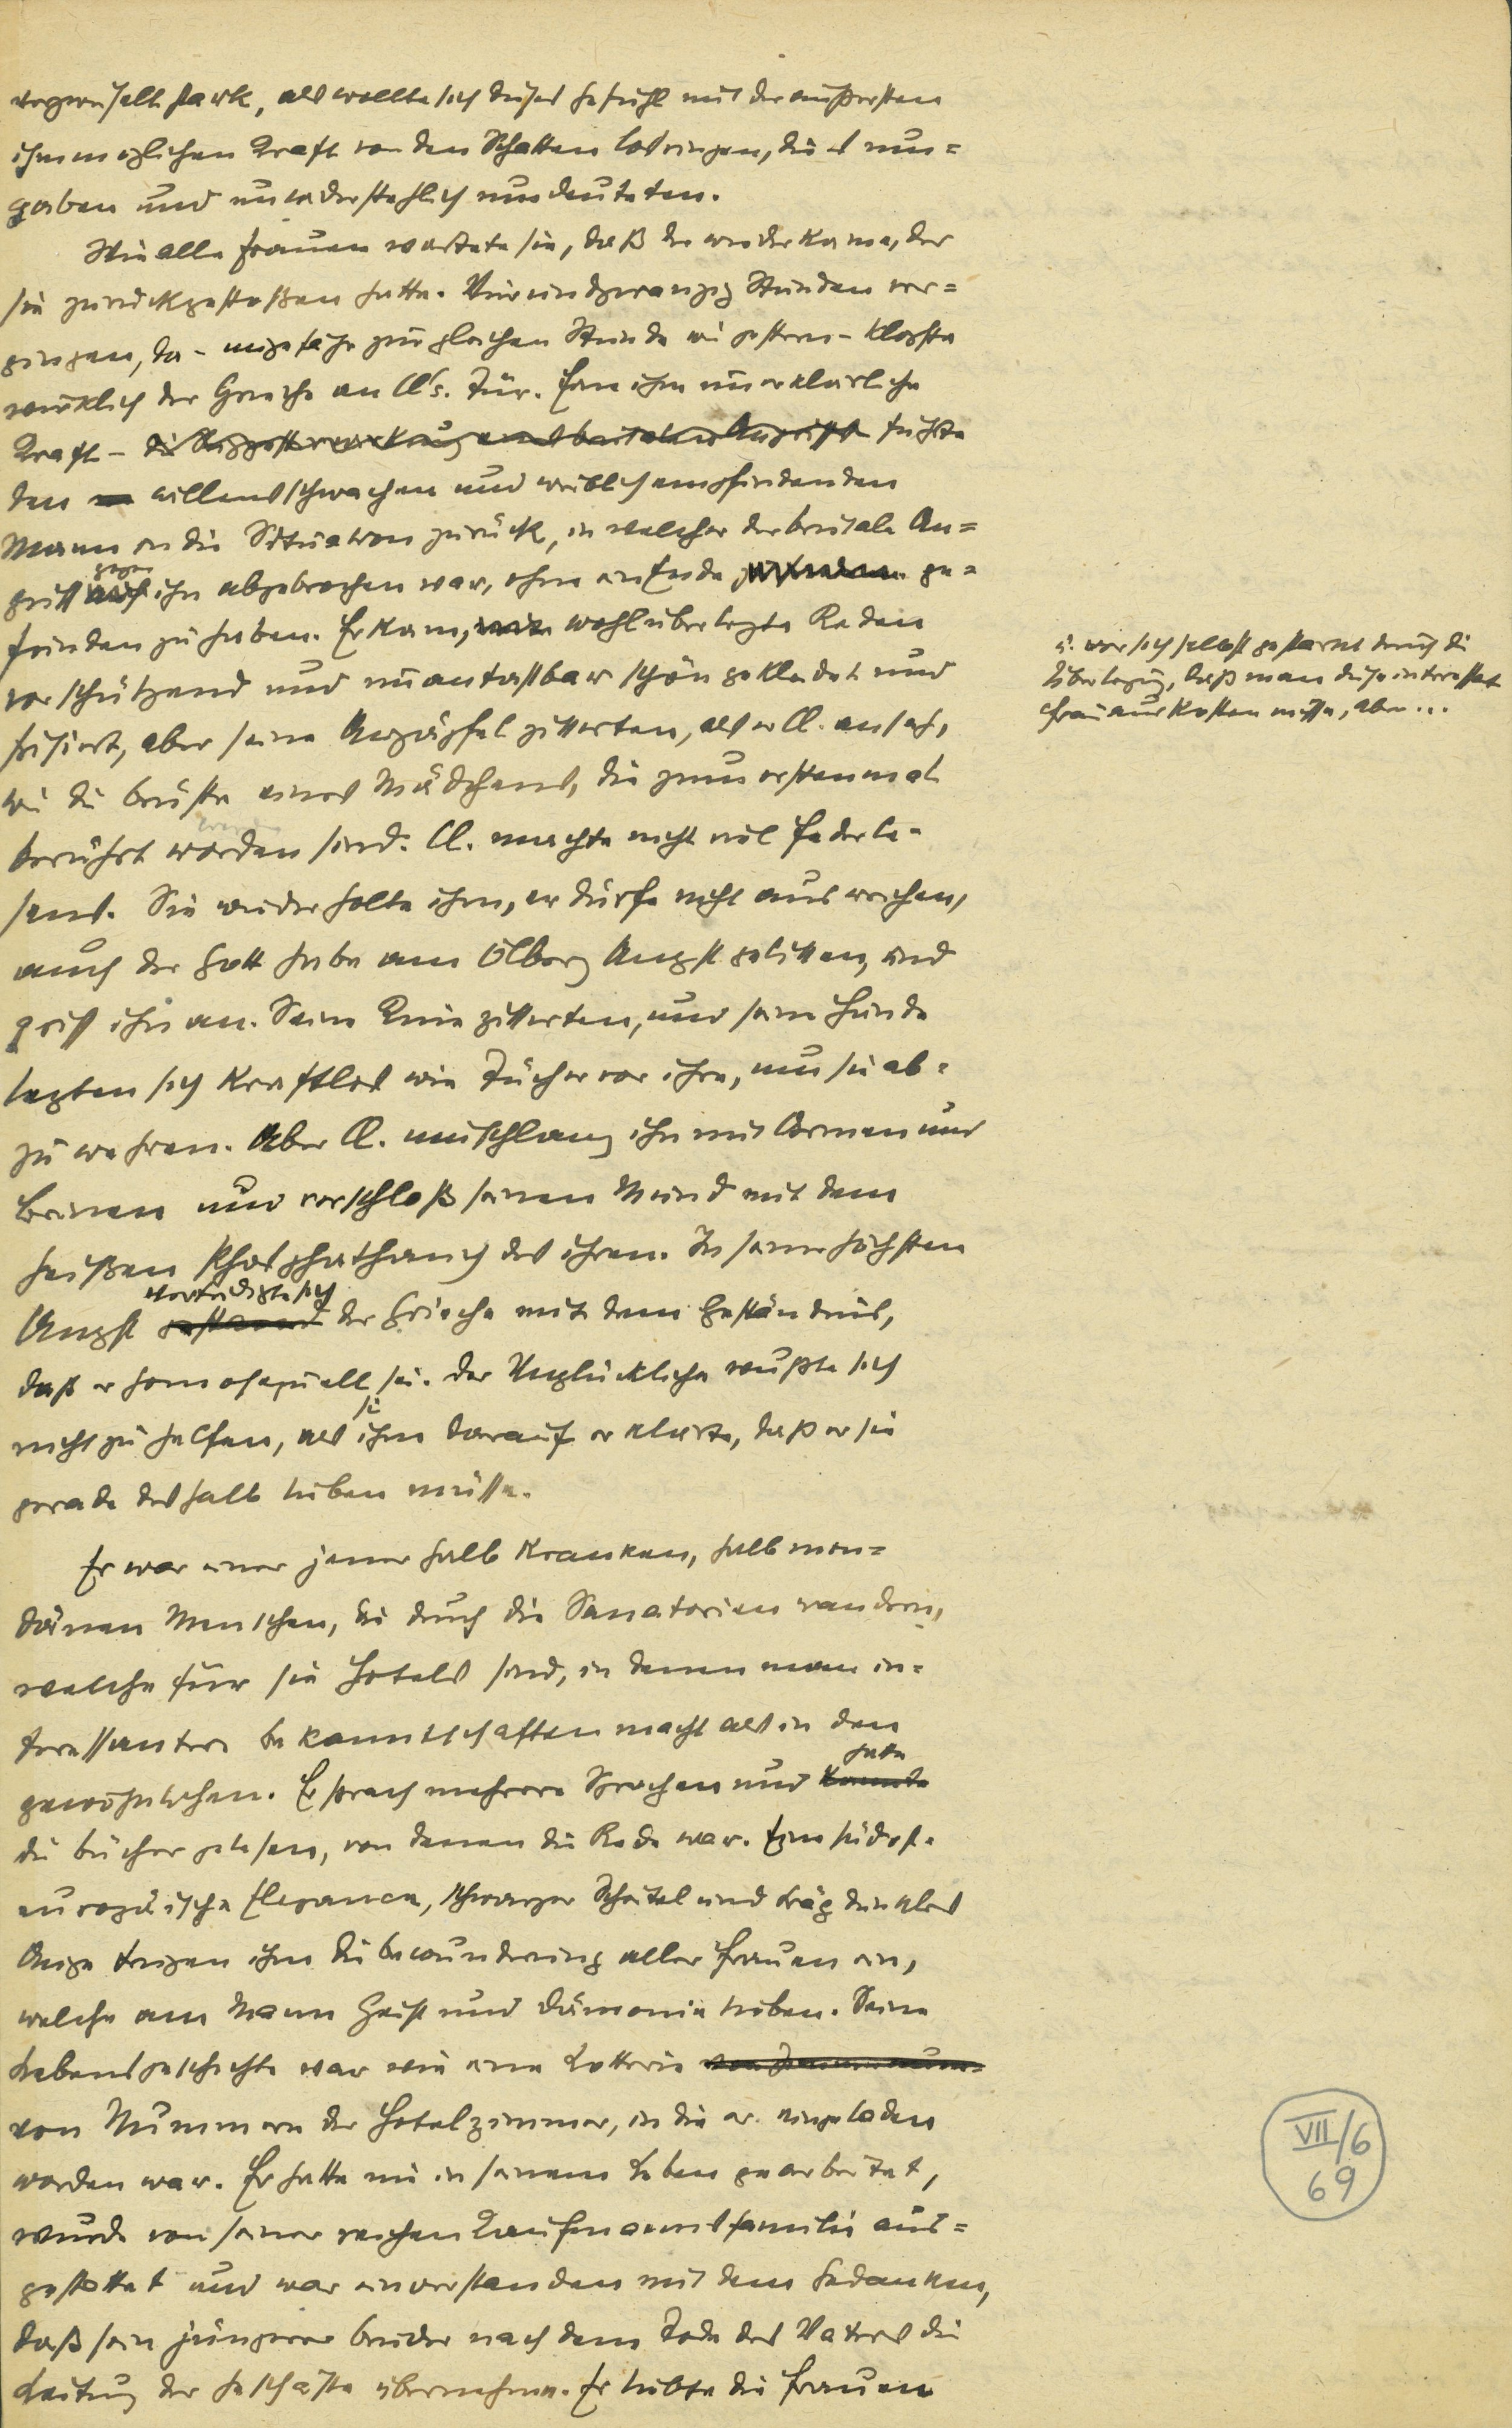 verzweifelt stark, als wollte sich dieses Gefühl mit der äußersten
ihm möglichen Kraft von den Schatten losringen, die es um=
gaben und unwiderstehlich umdeuteten.
Wie alle Frauen wartete sie, daß der wiederkäme, der
sie zurückgestoßen hatte. Vierundzwanzig Stunden ver=
gingen, da – ungefähr zur gleichen Stunde wie gestern – klopfte
wirklich der Grieche an Cl's. Tür. Eine ihm unerklärliche
Kraft – führte
den willensschwachen und weiblich empfindenden
Mann in die Situation zurück, in welcher der brutale An=
griff gegen ihn abgebrochen war, ohne ein Ende ge=
funden zu haben. Er kam, wohlüberlegte Reden
vorschützend und unantastbar schön gekleidet und
frisiert, aber seine Augäpfel zitterten, als er Cl. ansah,
wie die Brüste eines Mädchens, die zum erstenmal
berührt worden sind. Cl. machte nicht viel Federle=
sens. Sie wiederholte ihm, er dürfe nicht ausweichen,
auch der Gott habe am Ölberg Angst gelitten, und
griff ihn an. Seine Knie zitterten, und seine Hände
legten sich kraftlos wie Tücher vor ihre, um sie ab=
zuwehren. Aber Cl. umschlang ihn mit Armen und
Beinen und verschloß seinen Mund mit dem
heißen Phosphathauch des ihren. In seiner höchsten
Angst verteidigte sich der Grieche mit dem Geständnis,
daß er homosexuell sei. Der Unglückliche wußte sich
nicht zu helfen, als sie ihm darauf erklärte, daß er sie
gerade deshalb lieben müsse.
Er war einer jener halb Kranken, halb mon=
dänen Menschen, die durch die Sanatorien wandern,
welche für sie Hotels sind, in denen man in=
teressantere Bekanntschaften macht als in den
gewöhnlichen. Er sprach mehrere Sprachen und hatte
die Bücher gelesen, von denen die Rede war. Eine südost=
europäische Eleganz, schwarzer Scheitel und träg dunkles
Auge trugen ihm die Bewunderung aller Frauen ein,
welche am Mann Geist und Dämonie lieben. Seine
Lebensgeschichte war wie eine Lotterie
von Nummern der Hotelzimmer, in die er eingeladen
worden war. Er hatte nie in seinem Leben gearbeitet,
wurde von seiner reichen Kaufmannsfamilie aus=
gestattet und war einverstanden mit dem Gedanken,
daß sein jüngerer Bruder nach dem Tode des Vaters die
Leitung der Geschäfte übernehme. Er liebte die Frauen
u. vor sich selbst gestärkt durch die
Überlegung, daß man diese interessante
Frau auskosten müsse, aber ...
VII/6
69